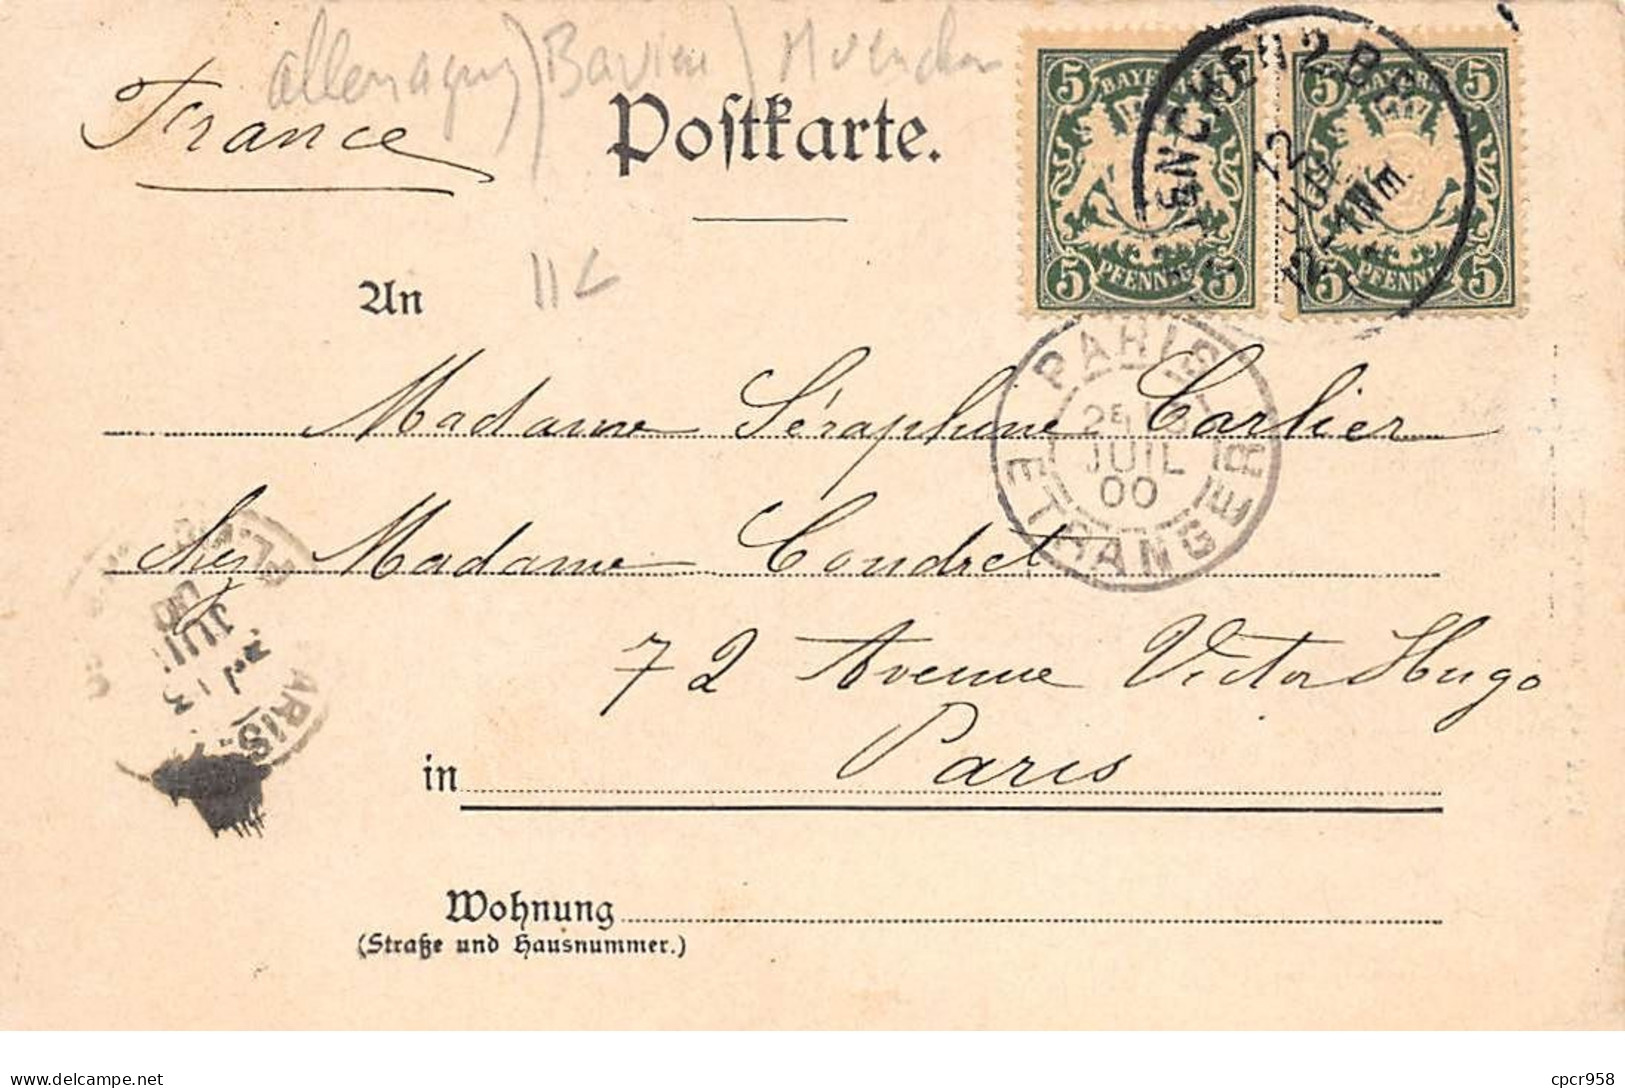 allemagne / Baviere / Muenchen
France
Postkarte.
5 5
BAYERN
5 PFENNIG 5
5 5
BAYERN
5 PFENNIG 5
MÜNCHEN 2 B.P.
12
JUL
12-1 NM.
An
PARIS
ETRANGER
JUIL
00
Madame Séraphine Carlier
chez Madame Coudret
72 Avenue Victor Hugo
in Paris
PARIS
JUIL
00
Wohnung
(Straße und Hausnummer.)
delcampe.net
cpcr958